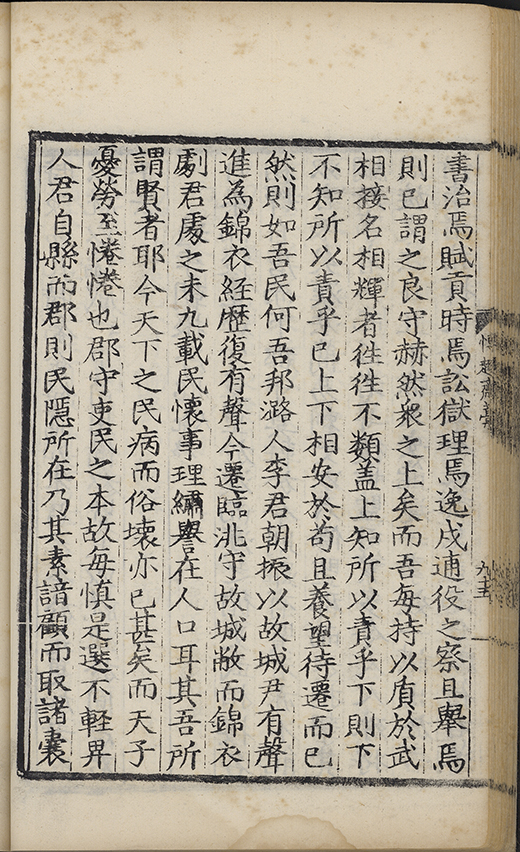 書治焉賦貢時焉訟獄理焉逸戍逋役之察且舉焉
則已謂之良守赫然衆之上矣而吾每持以質於武
相接名相輝者徃徃不類盖上知所以責乎下則下
不知所以責乎已上下相安於苟且養望待遷而已
然則如吾民何吾邦潞人李君朝振以故城尹有聲
進為錦衣經歴復有聲今遷臨洮守故城敝而錦衣
劇君處之未九載民懷事理繡譽在人口耳其吾所
謂賢者耶今天下之民病而俗壞亦已甚矣而天子
憂勞至惓惓也郡守吏民之本故每慎是選不輕畀
人君自縣而郡則民隱所在乃其素諳顧而取諸囊